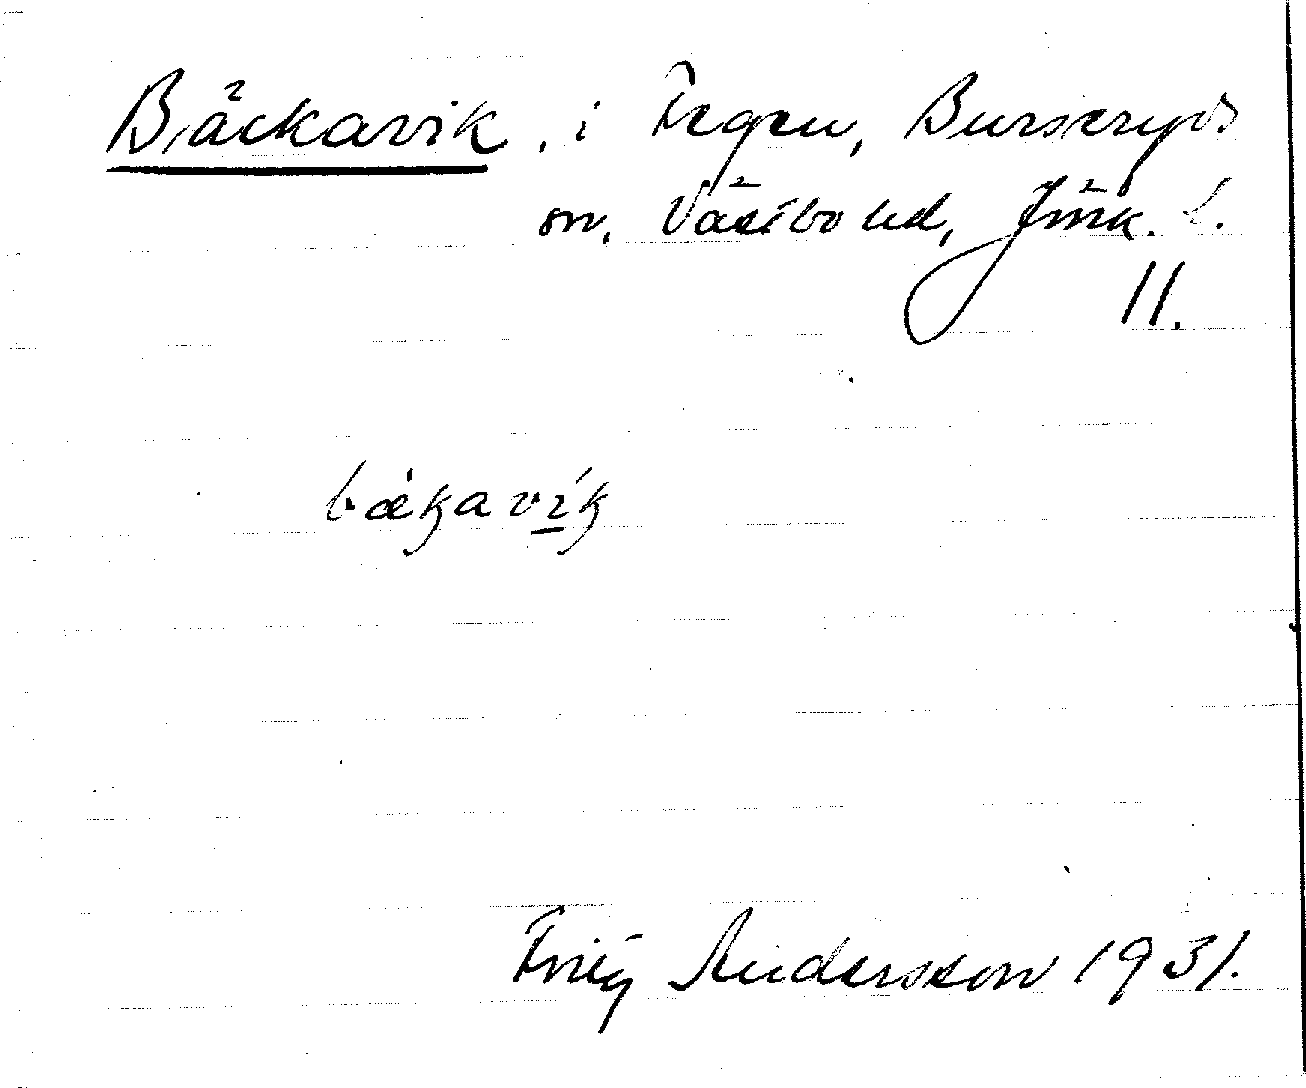 Bäckavik, i Fegen, Burseryds
sn, Västbo hd, Jönk. l.
11.
bækavik
Fritz Andersson 1931.